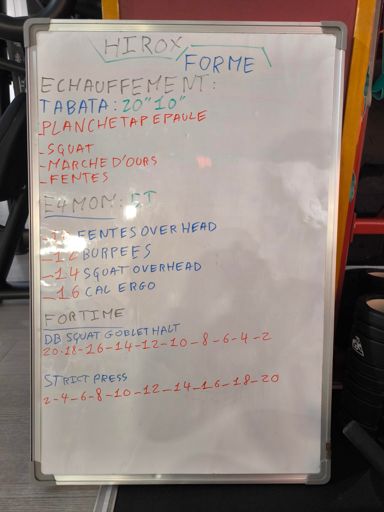 HIROX
FORME
ECHAUFFEMENT:
TABATA: 20" 10"
PLANCHE TAP EPAULE
-SQUAT
-MARCHE D'OURS
-FENTES
E4MOM: 5T
FENTES OVER HEAD
-12 BURPEES
-14 SQUAT OVERHEAD
-16 CAL ERGO
FORTIME
DB SQUAT GOBLET HALT
20-18-16-14-12-10-8-6-4-2
STRICT PRESS
2-4-6-8-10-12-14-16-18-20